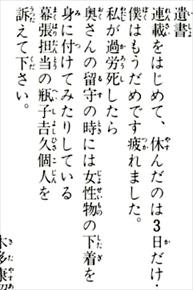 遺書
連載をはじめて、休んだのは3日だけ・
僕はもうだめです疲れました。
私が過労死したら
奥さんの留守の時には女性物の下着を
身に付けてみたりしている
幕張担当の瓶子吉久個人を
訴えて下さい。
木多康昭